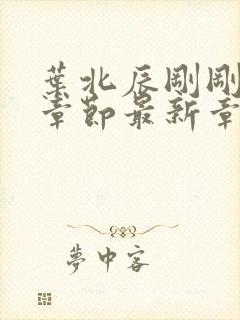 葉北辰剛剛
章節最新章
夢中客